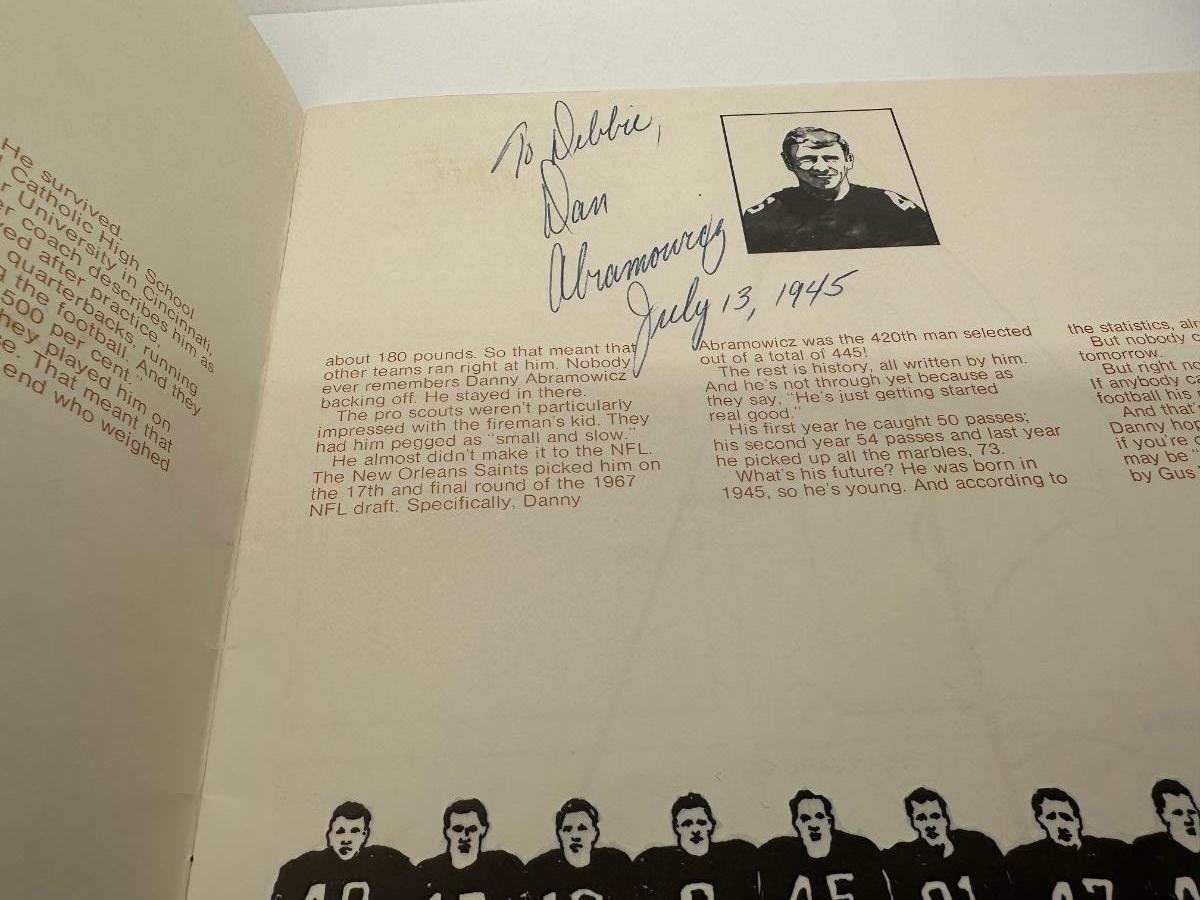 He survived
Catholic High School
University in Cincinnati,
coach describes him as
after practice.
quarterbacks, running
the football. And they
500 per cent."
they played him on
That meant that
end who weighed
To Debbie,
Dan
Abramowicz
July 13, 1945
about 180 pounds. So that meant that
other teams ran right at him. Nobody
ever remembers Danny Abramowicz
backing off. He stayed in there.
The pro scouts weren't particularly
impressed with the fireman's kid. They
had him pegged as "small and slow."
He almost didn't make it to the NFL.
The New Orleans Saints picked him on
the 17th and final round of the 1967
NFL draft. Specifically, Danny
Abramowicz was the 420th man selected
out of a total of 445!
The rest is history, all written by him.
And he's not through yet because as
they say, "He's just getting started
real good."
His first year he caught 50 passes;
his second year 54 passes and last year
he picked up all the marbles, 73.
What's his future? He was born in
1945, so he's young. And according to
the statistics,
But nobody
tomorrow.
But right
If anybody
football his
And
Danny
if you're
may be
by Gus
45
47